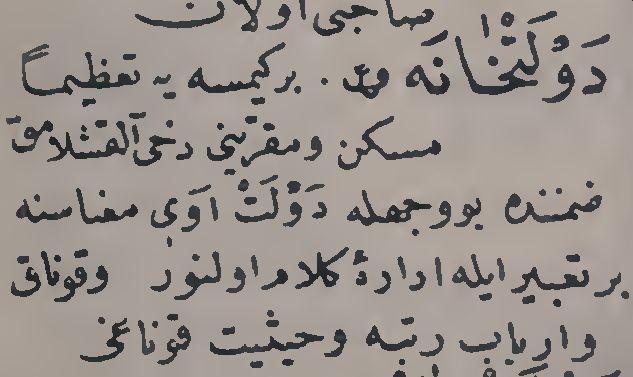 صاحبى اولان
دَوْلَتْخَانَه . بر كيمسه يه تعظيماً
مسكن و مقرّينى دخى
ضمننده بو وجهله دَوْلَتْ اَوى معناسنه
بر تعبير ايله ادارۀ كلام اولنور وقوناق
وارباب رتبه وحيثيت قوناغى